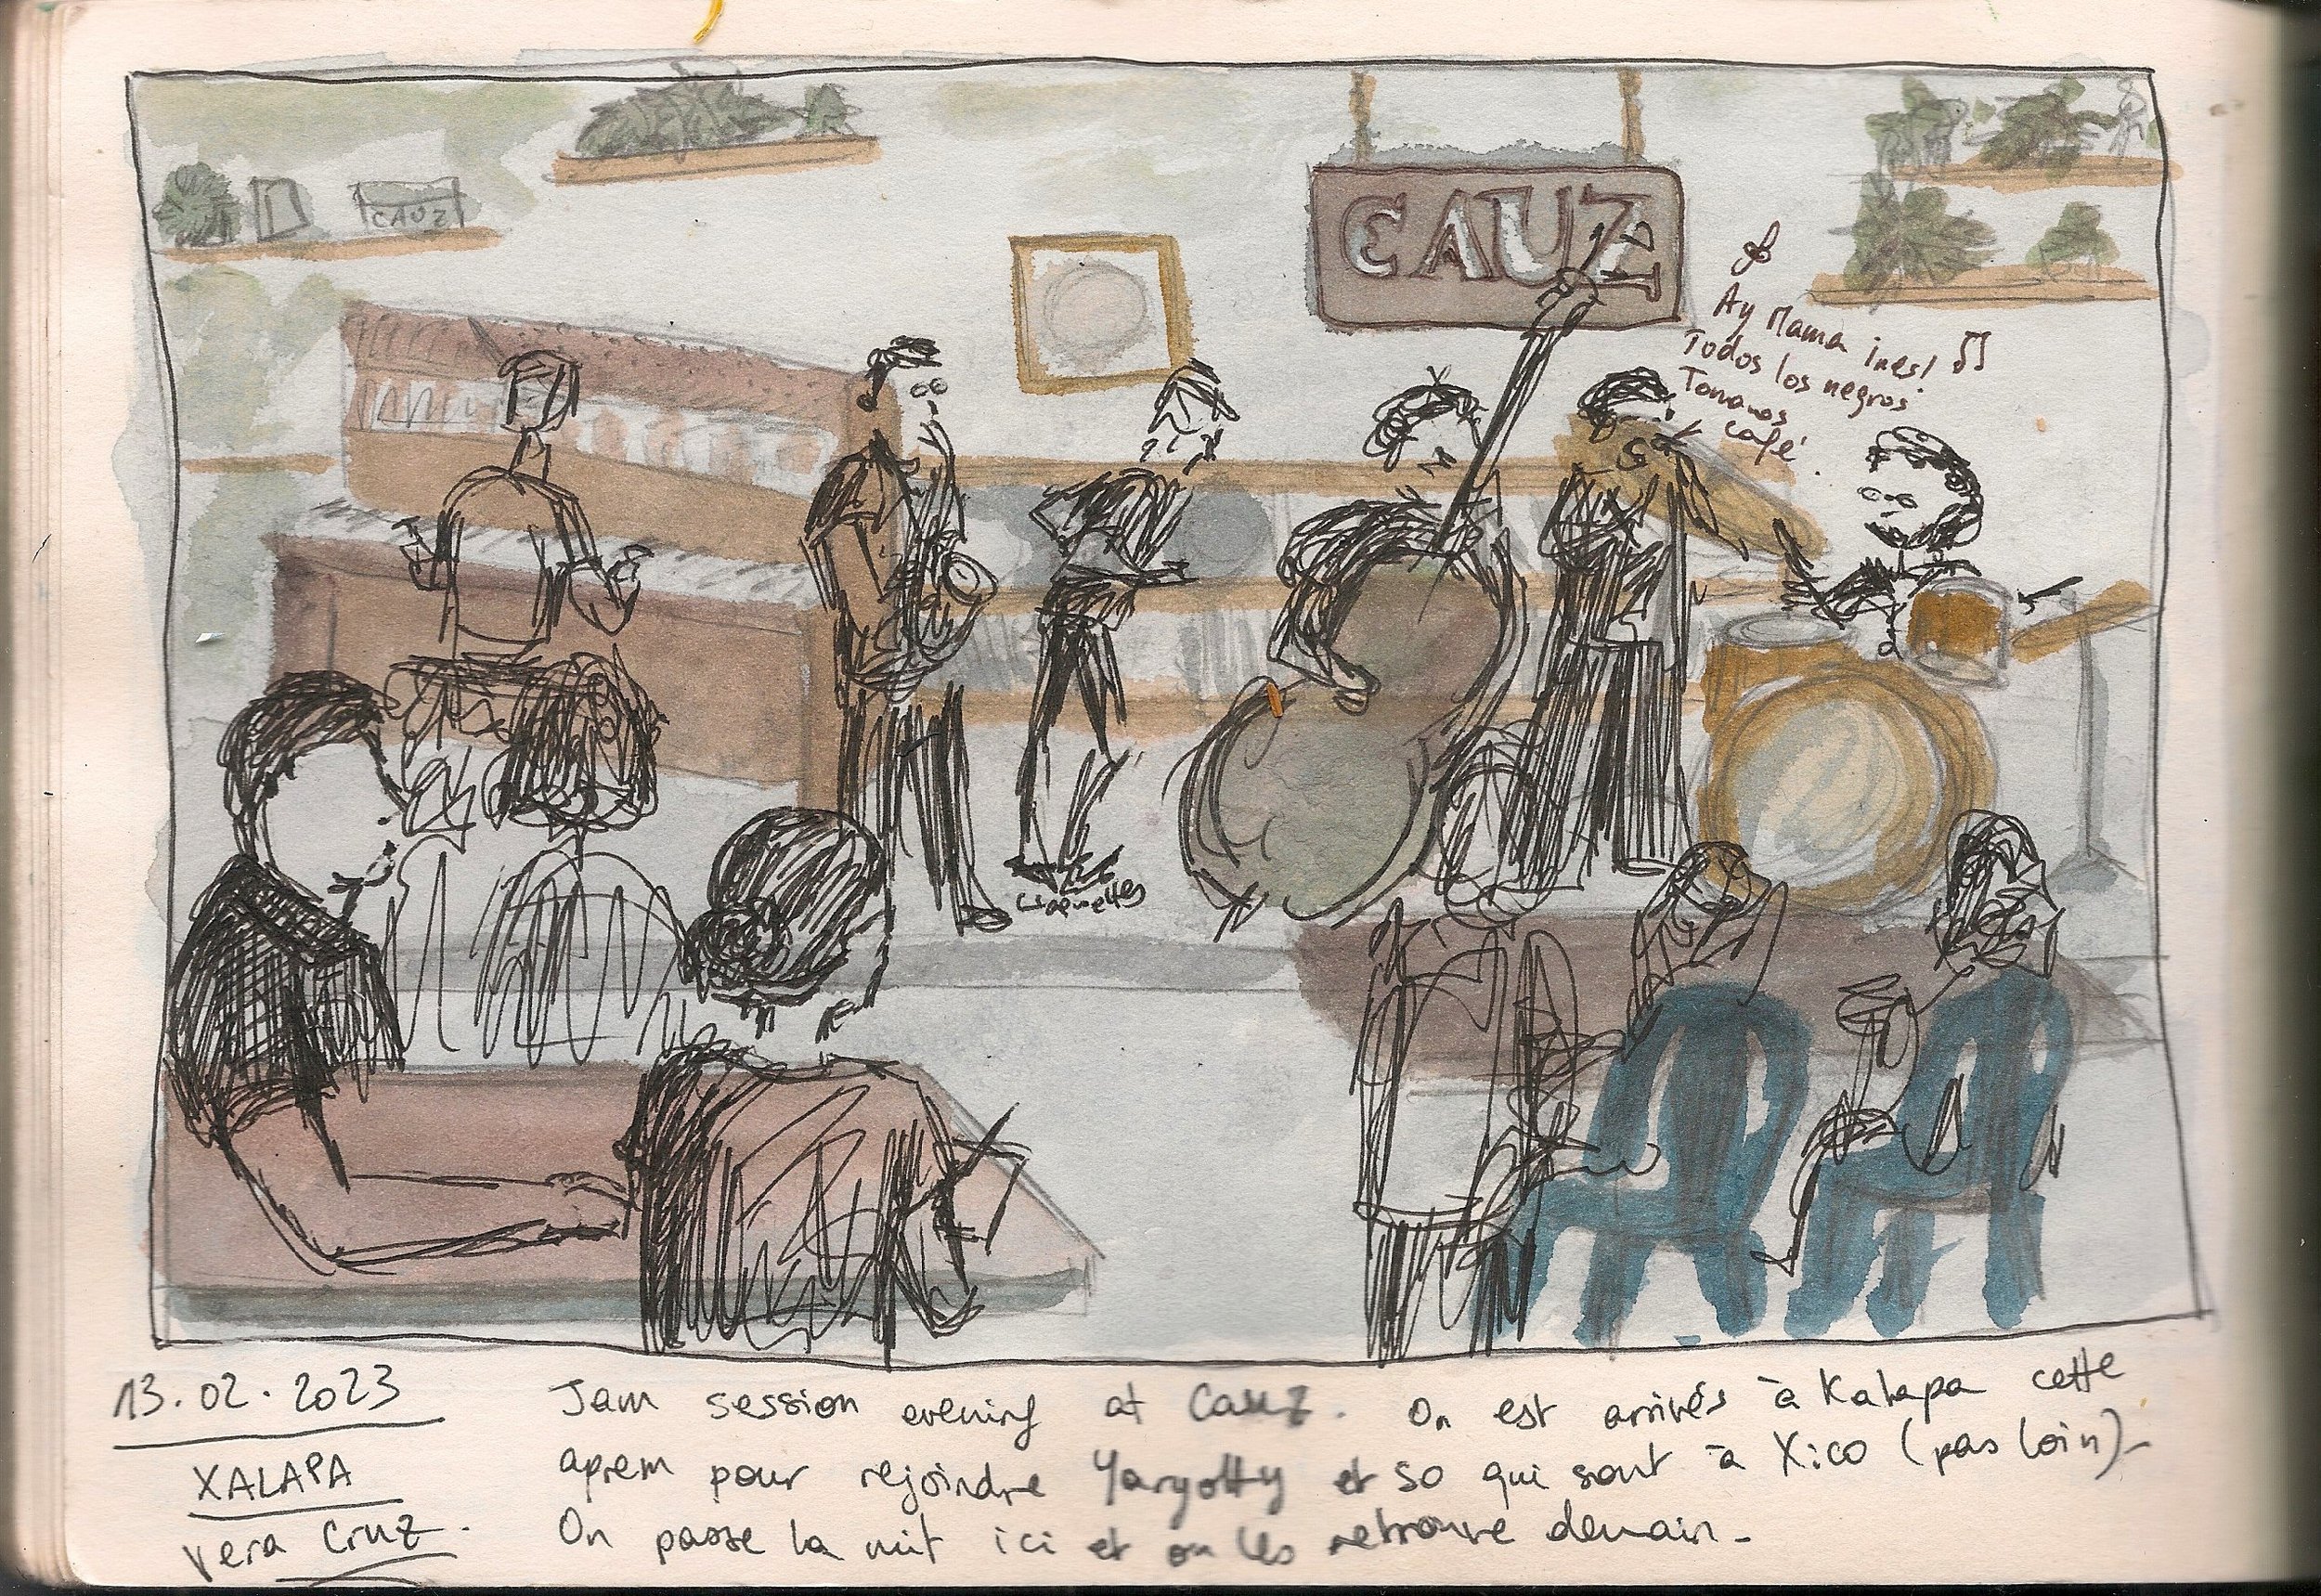 CAUZ
CAUZ
Ay Mama ines!
Todos los negros
Tomamos
café.
Claquettes
13.02.2023
XALAPA
Vera Cruz.
Jam session evening at Cauz. On est arrivés à Xalapa cette
aprem pour rejoindre et so qui sont à Xico (pas loin).
On passe la nuit ici et on les retrouve demain.